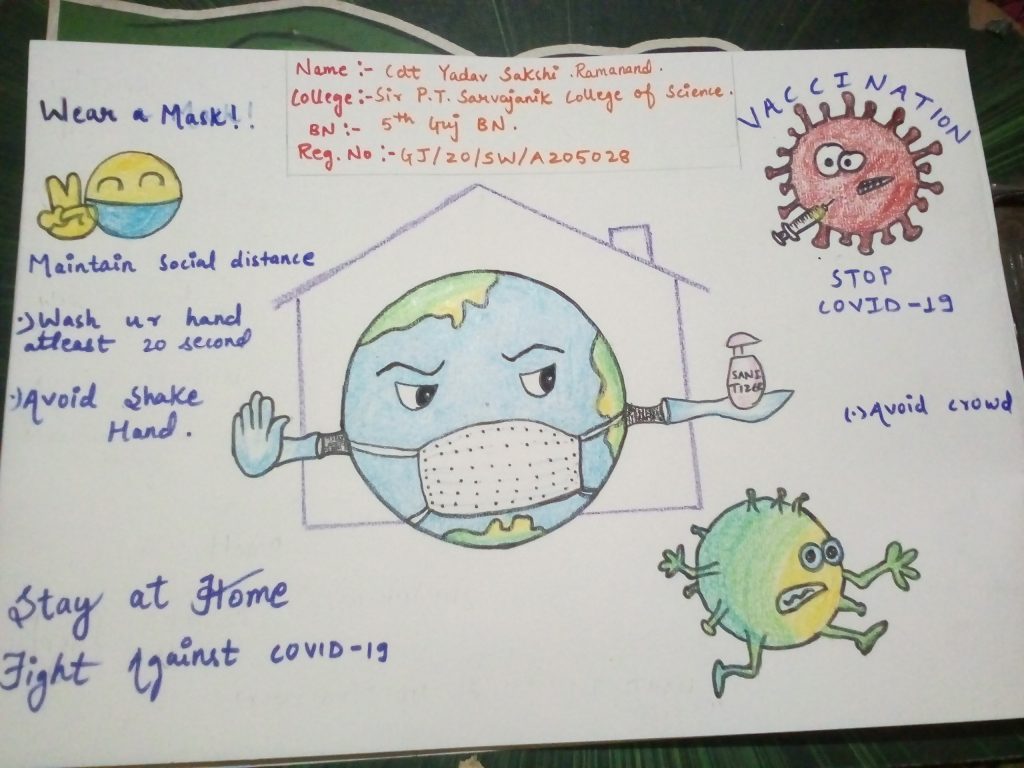 Name :- Cdt Yadav Sakshi .Ramanand.
College :- Sir P.T. Sarvajanik College of Science.
BN :- 5th Guj BN.
Reg. No :- GJ/20/SW/A205028
Wear a Mask!!
Maintain social distance
·) Wash ur hand
atleast 20 second
·) Avoid Shake
Hand.
VACCINATION
STOP
COVID-19
SANI
TIZER
(·) Avoid crowd
Stay at Home
Fight Against COVID-19